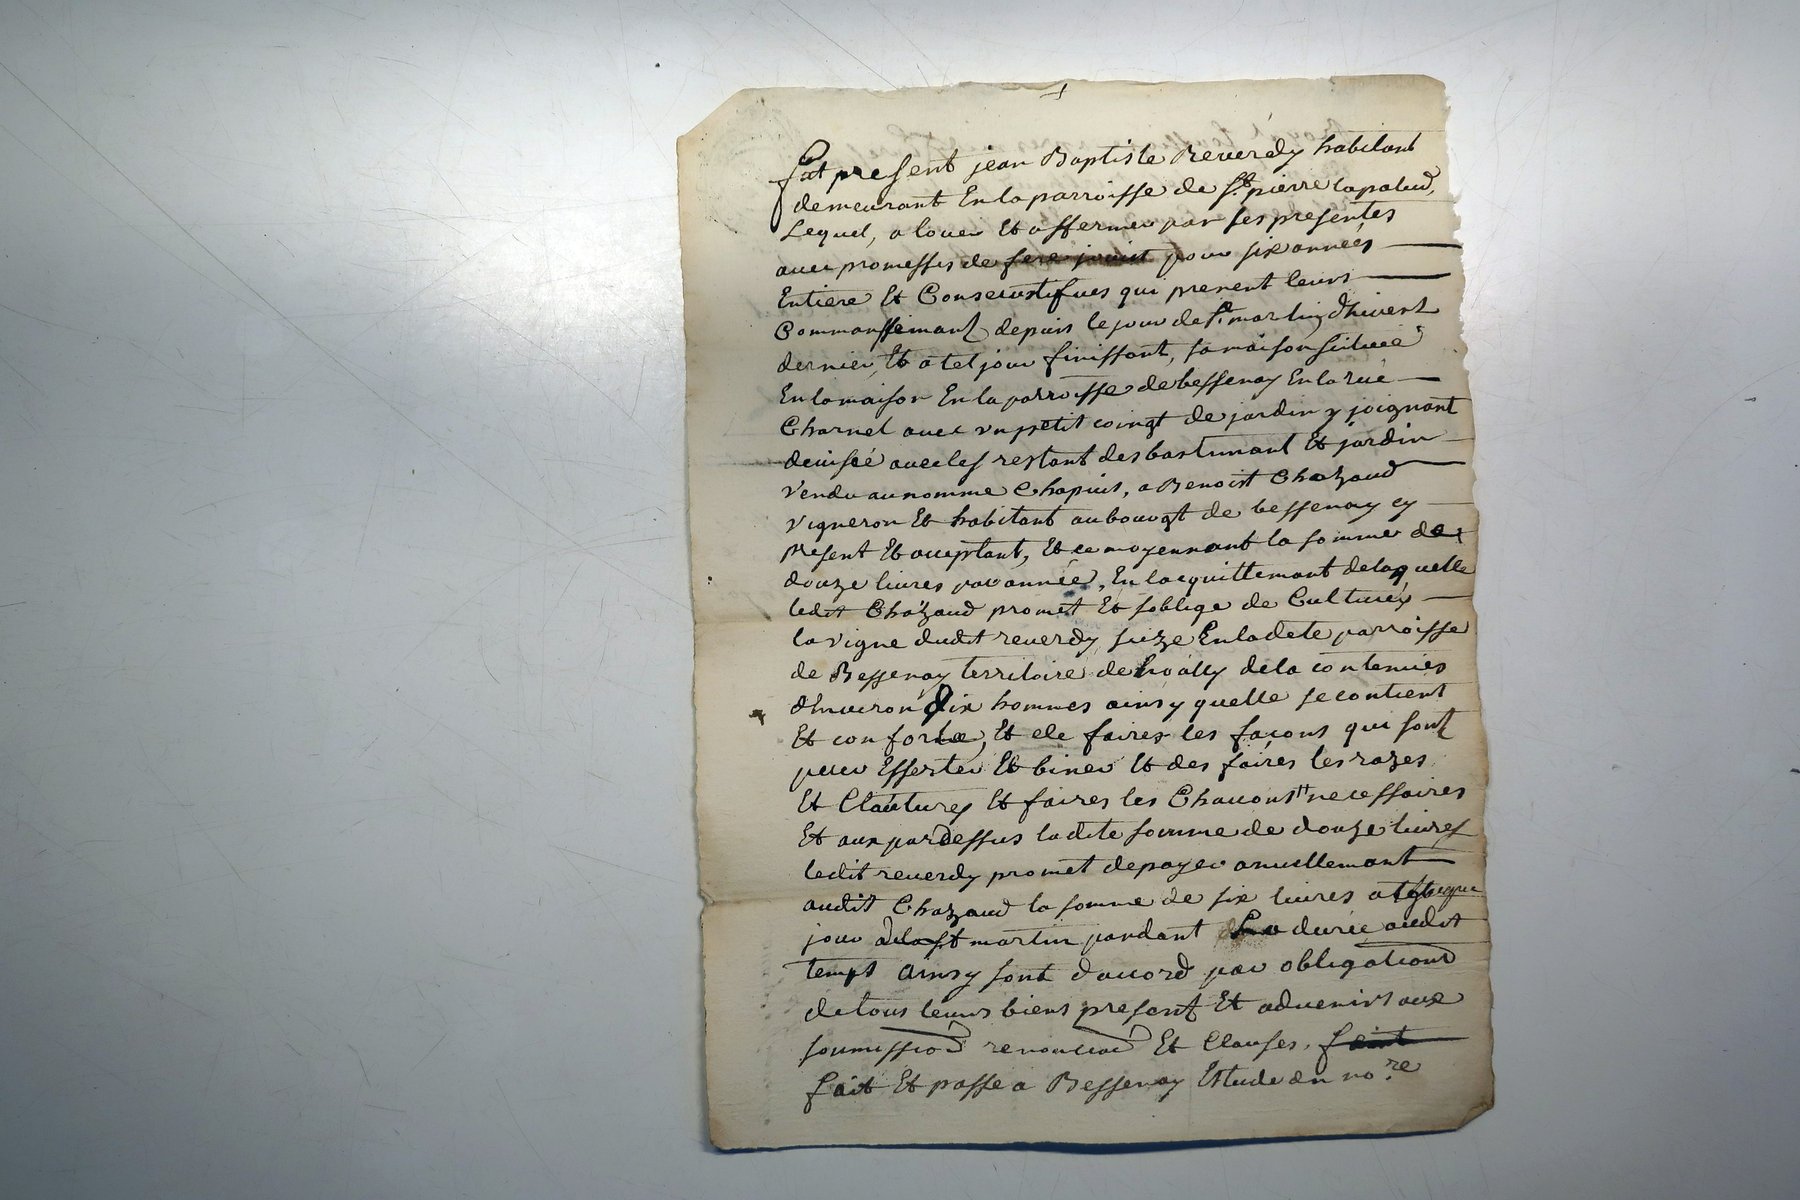 fut present jean Baptiste Reverdy habitant
demeurant En la parroisse de St. pierre lapalud,
Lequel, a louer Et affermer par ses presentes
avec promesses de fere jouir pour six années
Entiere Et Consecustifves qui prenent leurs
Commanssemant depuis le jour de St. martin d'hivert
dernier, Et a tel jour finissant, sa maison scituée
En la maison En la parroisse de bessenay En la rüe
Charnel avec un petit coingt de jardin y joignant
devisée avec les restant des bastimant Et jardin
vendu au nomme Chapius, a Benoist Chazaud
vigneron Et habitant au bourgt de bessenay cy
present Et acceptant, Et ce moyennant la somme de
douze livres par année, En lacquittemant de laquelle
ledit Chazaud promet Et soblige de Cultivér
la vigne dudit reverdy size En ladete parroisse
de Bessenay territoire de la contenüés
d'Environ dix hommes ainsy quelle se contient
Et confor, Et de faires les façons qui sont
Et biner Et des faires les razes
Et Clautures Et faires les necessaires
Et aux pardessus ladite somme de douze livres
ledit reverdy promet de payer anuellemant
audit Chazaud la somme de six livres a chaque
jour de la st martin pandant La durée audit
tempt ainsy sont d'accord par obligations
de tous leurs biens present Et advenirs aux
soumission renonciaon Et Clauses. faint
fait Et passe a Bessenay Etude du nore